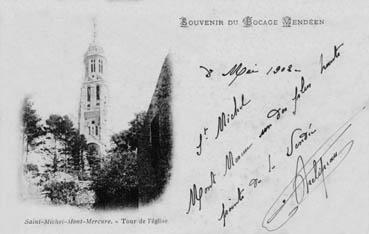 Souvenir du Bocage Vendéen
8 Mai 1902
St Michel
Mont Mercure un des plus hauts
points de la Vendée
Saint-Michel-Mont-Mercure. - Tour de l'église